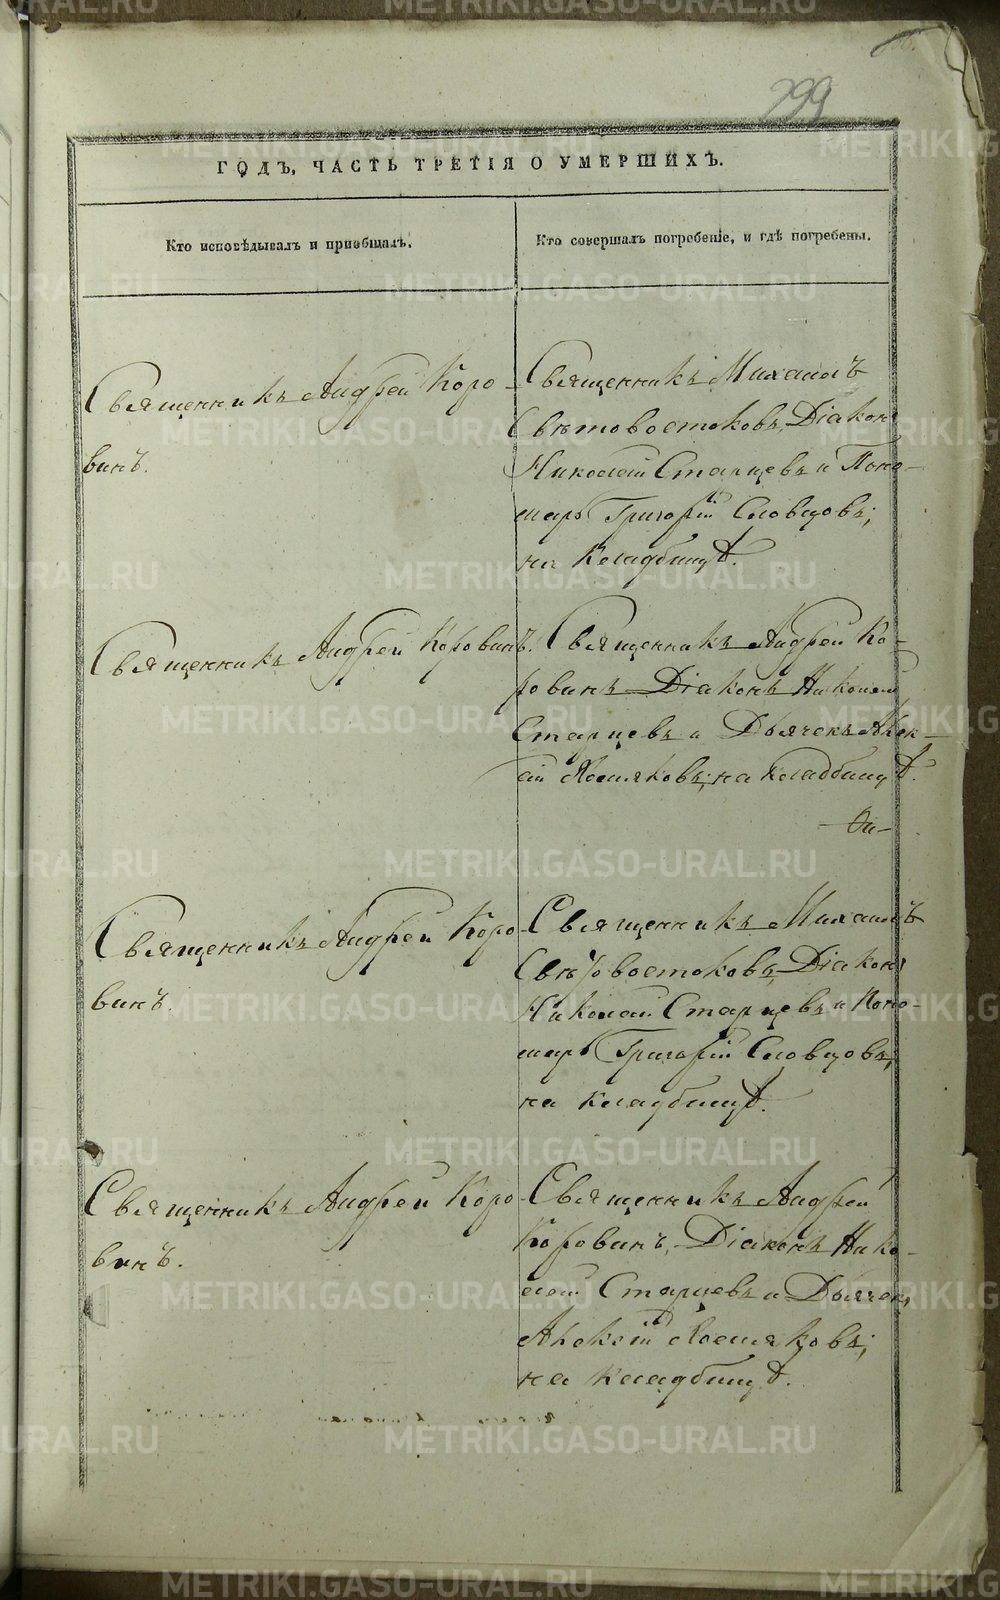 299
ГОДЪ, ЧАСТЬ ТРЕТІЯ О УМЕРШИХЪ.
Кто исповѣдывалъ и пріобщалъ.
Кто совершалъ погребеніе, и гдѣ погребены.
Священникъ Андрей Коро-
винъ.
Священникъ Михаилъ
Свѣтовостоковъ, Діаконъ
Николай Старцевъ и Поно-
марь Григорій Словцовъ;
на кладбищѣ.
Священникъ Андрей Коровинъ.
Священникъ Андрей Ко-
ровинъ Діаконъ Николай
Старцевъ и Дьячекъ Алек-
сѣй Хосяковъ; на кладбищѣ.
Священникъ Андрей Коро-
винъ.
Священникъ Михаилъ
Свѣтовостоковъ, Діаконъ
Николай Старцевъ и Поно-
марь Григорій Словцовъ;
на кладбищѣ.
Священникъ Андрей Коро-
винъ.
Священникъ Андрей
Коровинъ, Діаконъ Нико-
лай Старцевъ и Дьячекъ
на кладбищѣ.
METRIKI.GASO-URAL.RU